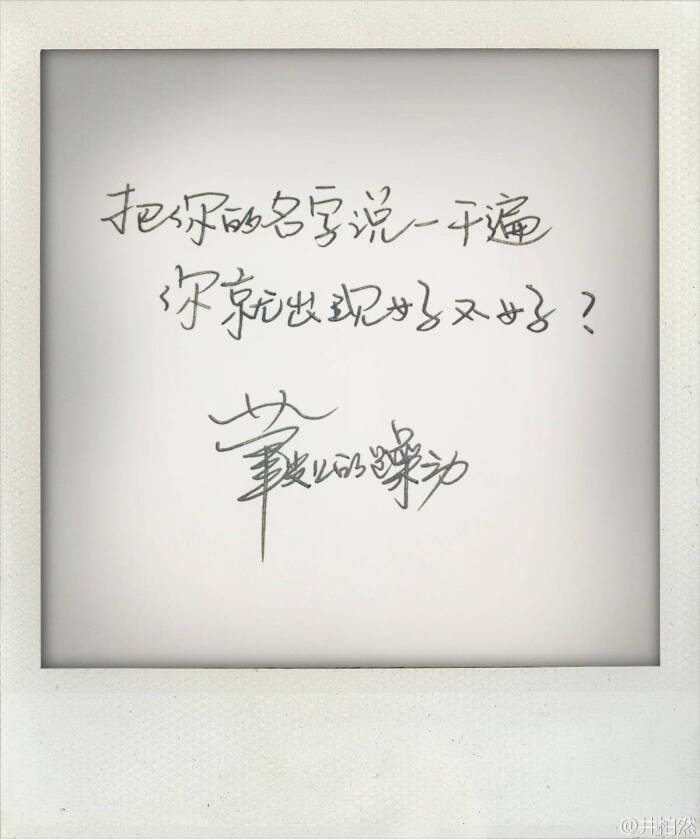 把你的名字说一千遍
你就出现好不好?
笔尖上的躁动
@井柏然